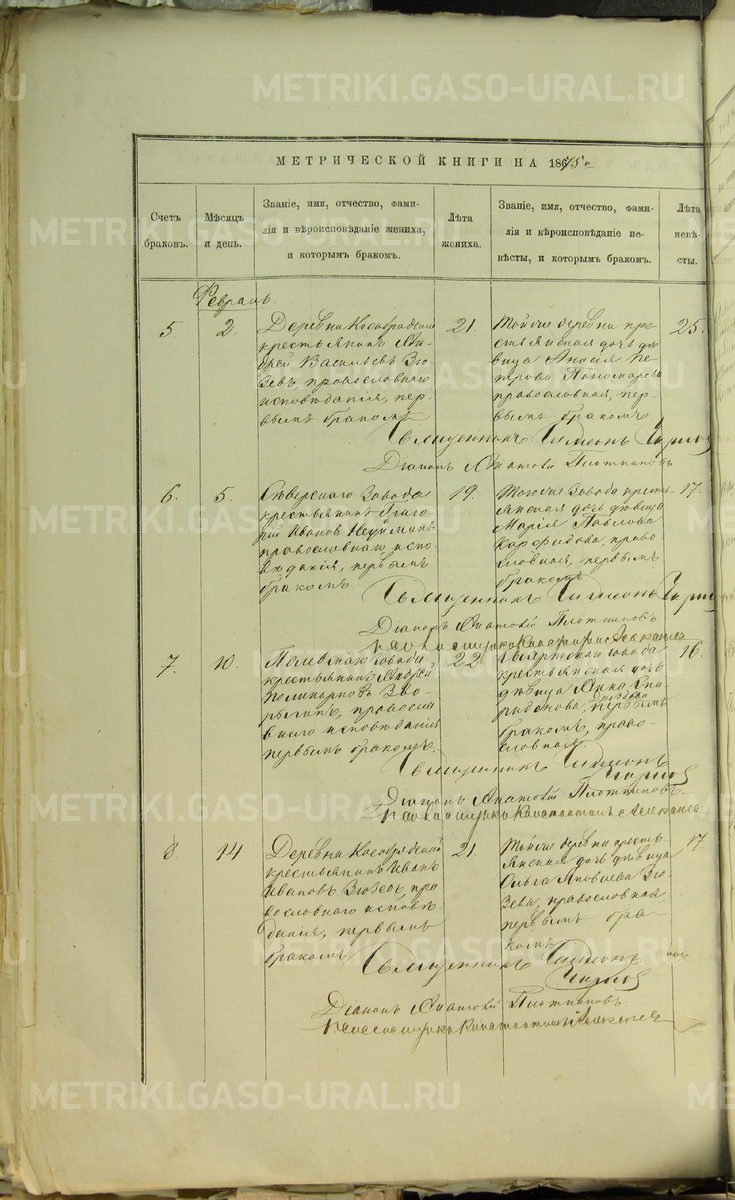 METRIKI.GASO-URAL.RU
МЕТРИЧЕСКОЙ КНИГИ НА 1875 г
Счетъ браковъ.
Мѣсяцъ и день.
Званіе, имя, отчество, фами-
лія и вѣроисповѣданіе жениха,
и которымъ бракомъ.
Лѣта жениха.
Званіе, имя, отчество, фами-
лія и вѣроисповѣданіе не-
вѣсты, и которымъ бракомъ.
Лѣта невѣ-
сты.
Февраль.
5
2.
Деревни Кособродской
крестьянинъ Ан-
дрей Васильевъ Зю-
зевъ, православнаго
исповѣданія, пер-
вымъ бракомъ
21
Тойже деревни кре-
стьянская дочь дѣ-
вица Анисія Пе-
трова Пономарева
православная, пер-
вымъ бракомъ
25.
Священникъ Симеонъ
Діаконъ Плотниковъ
6.
5.
Сѣверскаго завода
крестьянинъ Григо-
рій Ивановъ
православнаго испо-
вѣданія, первымъ
бракомъ
19.
Тогоже завода кресть-
янская дочь дѣвица
Марія Павлова
право-
славная, первымъ
бракомъ
17.
Священникъ Симеонъ
Діаконъ Плотниковъ
7.
10.
Полевскаго завода
крестьянинъ Андрей
Поликарповъ
православ
наго исповѣданія
первымъ бракомъ.
22
завода
крестьянская дочь
дѣвица Анна Спи-
ридонова первымъ
бракомъ, право-
славная
16.
Священникъ Симеонъ
Діаконъ Плотниковъ.
8
14
Деревни Кособродской
крестьянинъ Иванъ
Ивановъ Зюзевъ, пра
вославнаго исповѣ-
данія, первымъ
бракомъ
21.
Тойже деревни кресть-
янская дочь дѣвица
Ольга Яковлева Зю-
зева, православная
первымъ бра-
комъ
17
Священникъ Симеонъ
Діаконъ Плотниковъ.